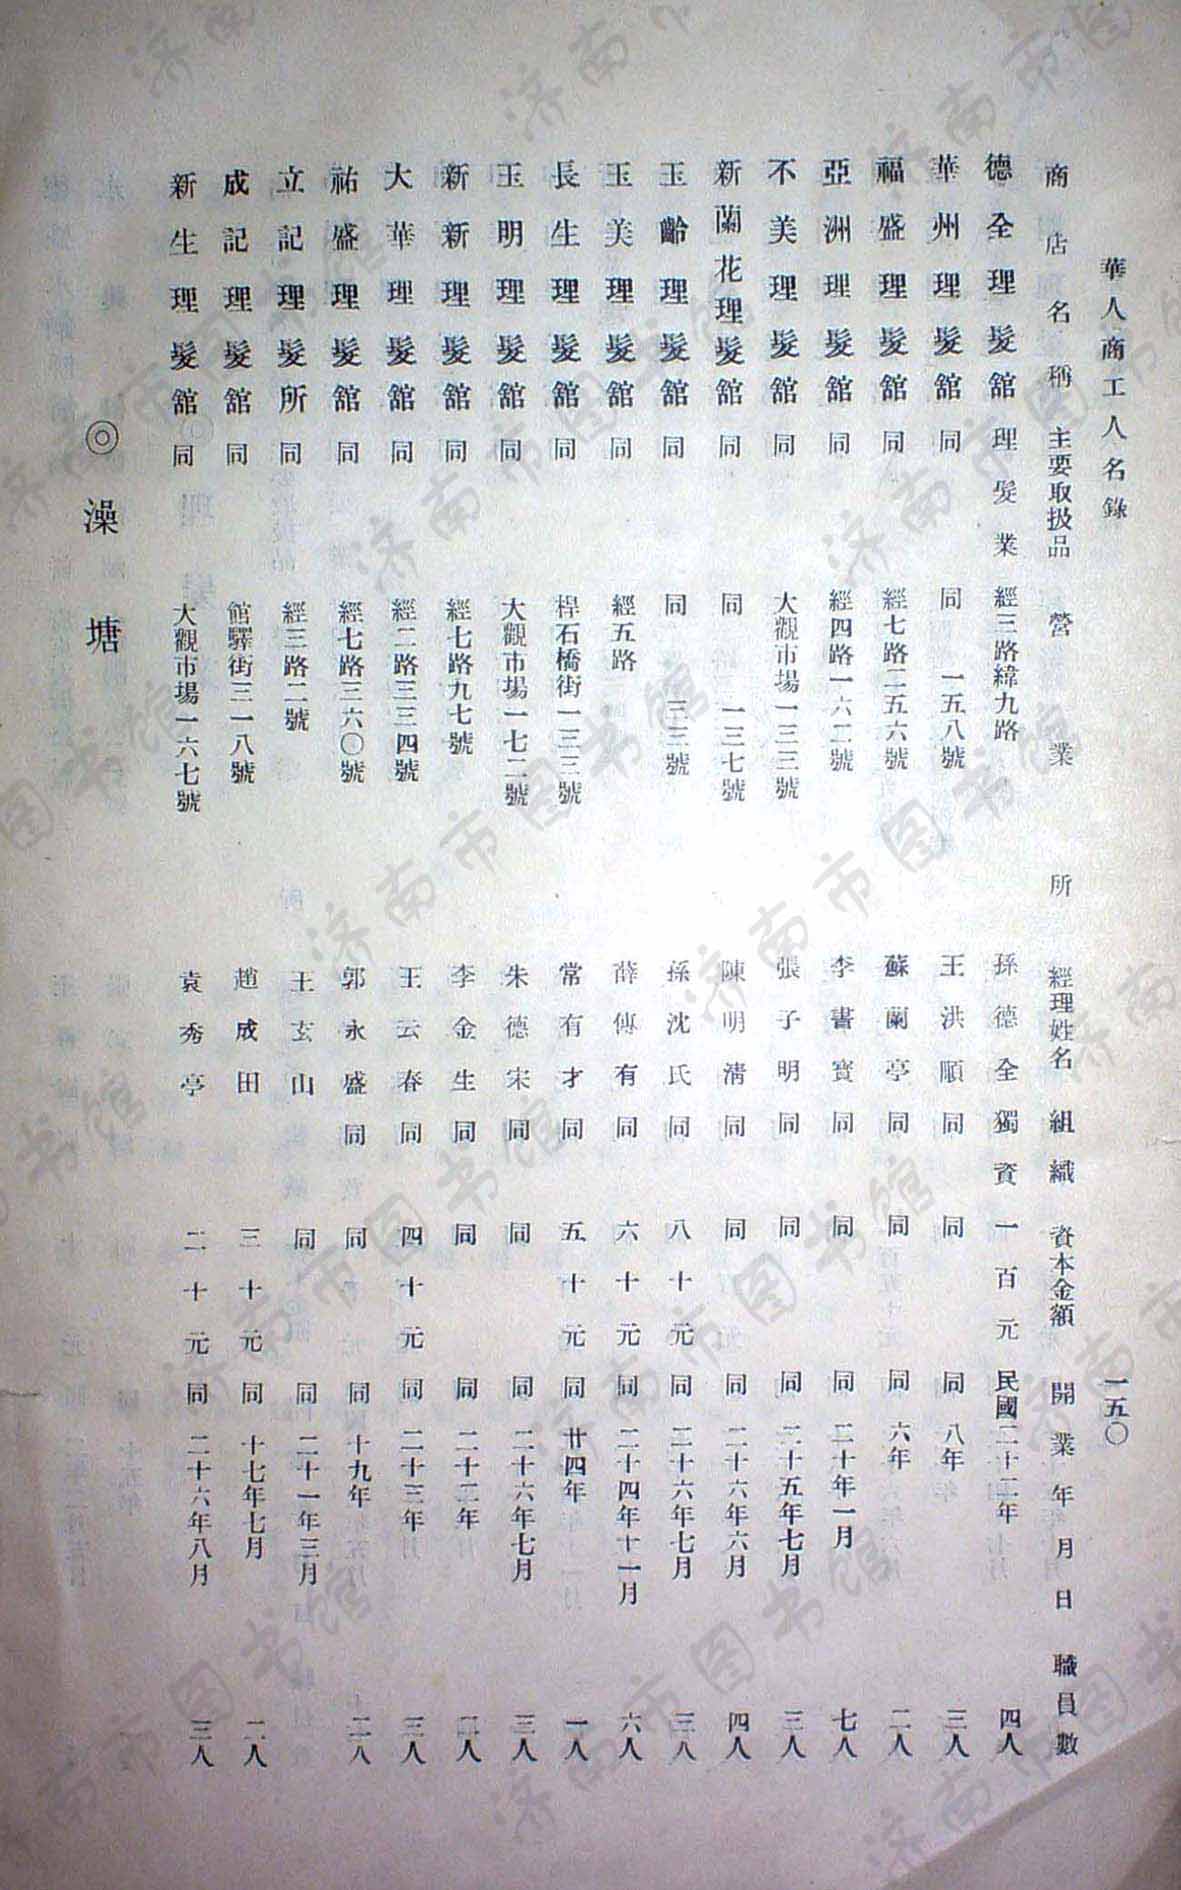 華人商工人名錄 一五〇
商店名稱 主要取扱品 營業所 經理姓名 組織 資本金額 開業年月日 職員數
德全理髮舘 理髮業 經三路緯九路 孫德全 獨資 一百元 民國二十二年 四人
華州理髮舘 同 同 一五八號 王洪順 同 同 同 八年 三人
福盛理髮舘 同 經七路二五六號 蘇蘭亭 同 同 同 六年 二人
亞洲理髮舘 同 經四路一六二號 李書寶 同 同 同 二十年一月 七人
不美理髮舘 同 大觀市場一三三號 張子明 同 同 同 二十五年七月 三人
新蘭花理髮舘 同 同 一三七號 陳明清 同 同 同 二十六年六月 四人
玉齡理髮舘 同 同 三三號 孫沈氏 同 八十元 同 二十六年七月 三人
玉美理髮舘 同 經五路 薛傳有 同 六十元 同 二十四年十一月 六人
長生理髮舘 同 桿石橋街一三三號 常有才 同 五十元 同 廿四年 一人
玉明理髮舘 同 大觀市場一七二號 朱德宋 同 同 同 二十六年七月 三人
新新理髮舘 同 經七路九七號 李金生 同 同 同 二十二年 二人
大華理髮舘 同 經二路三三四號 王云春 同 四十元 同 二十三年 三人
祐盛理髮舘 同 經七路三六〇號 郭永盛 同 同 同 十九年 二人
立記理髮所 同 經三路二號 王玄山 同 同 二十一年三月
成記理髮舘 同 館驛街三一八號 趙成田 三十元 同 十七年七月 二人
新生理髮舘 同 大觀市場一六七號 袁秀亭 二十元 同 二十六年八月 三人
◎澡塘
济南市图书馆